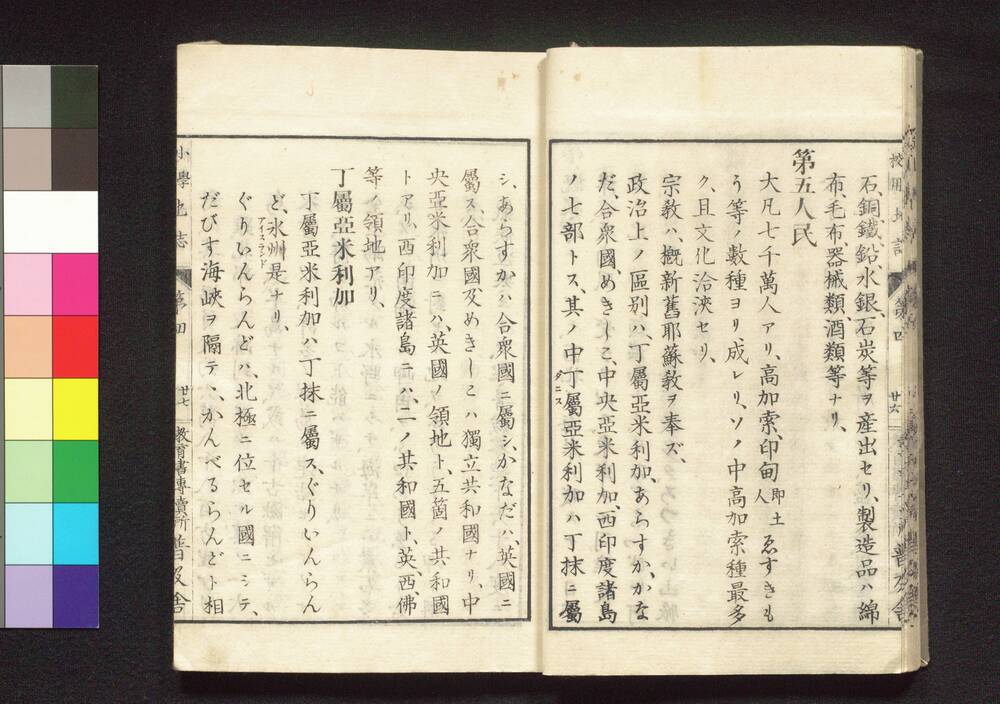 石、銅鐵鉛水銀石炭等ヲ産出セリ、製造品ハ綿
布、毛布器械類、酒類等ナリ、
第五人民
大凡七千萬人アリ、高加索、印甸即土人ゑすきも
う等ノ數種ヨリ成レリ、ソノ中高加索種最多
ク、且文化洽浹セリ、
宗敎ハ、概新舊耶蘇敎ヲ奉ズ、
政治上ノ區別ハ、丁屬亞米利加、あらすか、かな
だ、合衆國、めきしこ、中央亞米利加、西印度諸島
ノ七部トス、其ノ中丁屬亞米利加ハ丁抹ニ屬
シ、あらすかハ合衆國ニ屬シ、かなだハ、英國ニ
屬ス、合衆國及めきしこハ獨立共和國ナリ、中
央亞米利加ニハ、英國ノ領地ト、五箇ノ共和國
トアリ、西印度諸島ニハ、二ノ共和國ト、英西、佛
等ノ領地アリ、
丁屬亞米利加
丁屬亞米利加ハ丁抹ニ屬ス、ぐりいんらん
ど、氷州是ナリ、
アイスランド
ぐりいんらんどハ、北極ニ位セル國ニシテ、
だびす海峽ヲ隔テ、かんべるらんどト相
小學地志
第四
廿七
敎育書專賣所普及舍